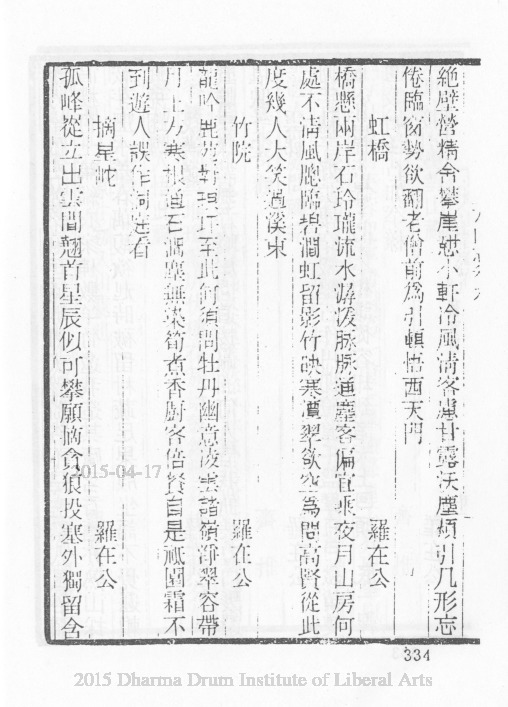 絶壁營精舍攀崖小軒冷風清客甘露沃塵煩引几形忘
倦臨窗勢欲翻老僧前爲引頓悟西天門
虹橋
羅在公
橋懸兩岸石玲瓏流水潺湲脉脉通塵客偏宜乘夜月山房何
處不清風臨碧澗虹留影竹映寒潭翠欲空爲問高賢從此
度幾人大笑過溪東
竹院
羅在公
龍吟鹿苑至此何須問牡丹幽意凌雲諸嶺翠容帶
月上方寒根道石塵無染筍煮香廚客倍餐自是祗園霜不
到遊人誤作淇園看
摘星
羅在公
孤峰從立出雲間翹首星辰似可攀願摘貪狼投塞外獨留含
334
2015-04-17
2015 Dharma Drum Institute of Liberal Arts